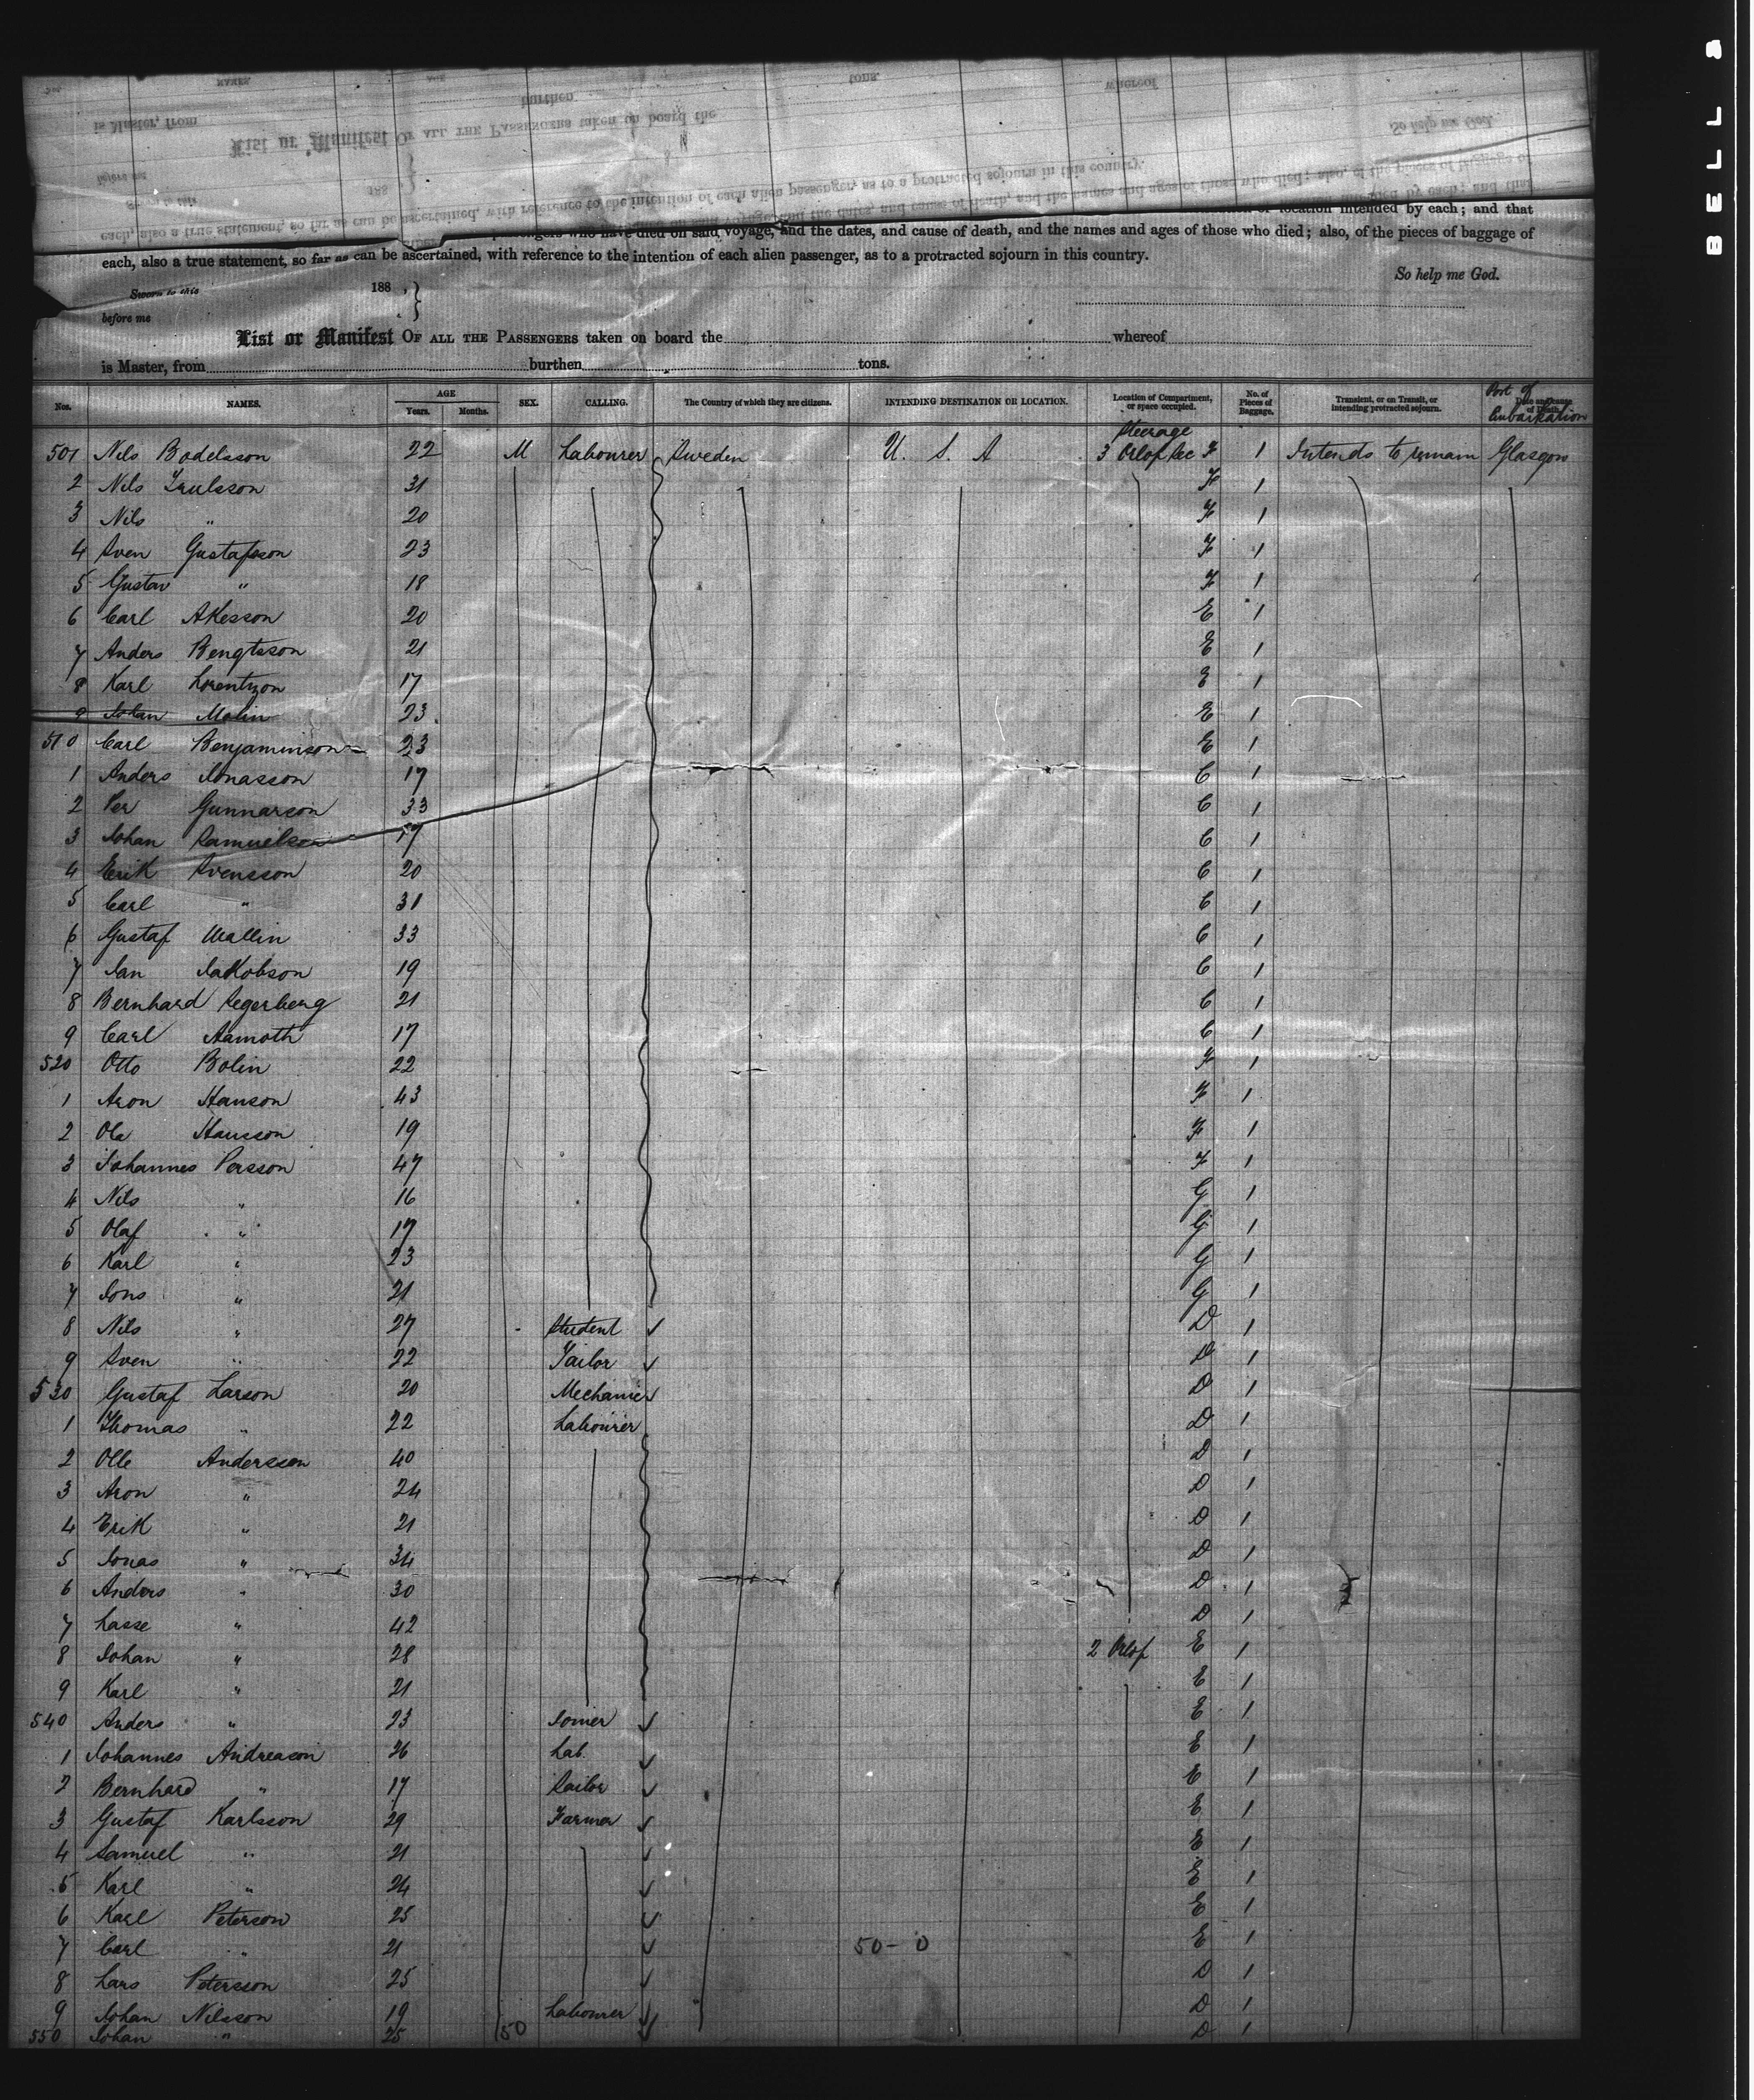 location intended by each; and that
passengers who have died on said voyage, and the dates, and cause of death, and the names and ages of those who died; also, of the pieces of baggage of
each, also a true statement, so far as can be ascertained, with reference to the intention of each alien passenger, as to a protracted sojourn in this country.
So help me God.
Sworn to this 188 ,
before me
List or Manifest OF ALL THE PASSENGERS taken on board the whereof
is Master, from burthen tons.
Nos. NAMES. AGE Years. Months. SEX. CALLING. The Country of which they are citizens. INTENDING DESTINATION OR LOCATION. Location of Compartment, or space occupied. No. of Pieces of Baggage. Transient, or on Transit, or intending protracted sojourn. Port of Embarkation
Steerage
501 Nils Bodelsson 22 M Labourer Sweden U. S. A 3 Orlop Sec F 1 Intends to remain Glasgow
2 Nils 31 F 1
3 Nils " 20 F 1
4 Sven Gustafsson 23 F 1
5 Gustav " 18 F 1
6 Carl Akesson 20 E 1
7 Anders Bengtsson 21 E 1
8 Karl Lorentzon 17 E 1
9 Johan Molin 23 E 1
510 Carl Benjaminson 23 E 1
1 Anders Jonasson 17 C 1
2 Per Gunnarson 33 C 1
3 Johan Samuelson 17 C 1
4 Erik Svensson 20 C 1
5 Carl " 31 C 1
6 Gustaf Wallin 33 C 1
7 Jan Jakobson 19 C 1
8 Bernhard Segerberg 21 C 1
9 Carl Aamoth 17 C 1
520 Otto Bolin 22 F 1
1 Aron Hanson 43 F 1
2 Ola Hansson 19 F 1
3 Johannes Persson 47 F 1
4 Nils " 16 G 1
5 Olaf " 17 G 1
6 Karl " 23 G 1
7 Jons " 21 G 1
8 Nils " 27 Student D 1
9 Sven " 22 Tailor D 1
530 Gustaf Larson 20 Mechanic D 1
1 Thomas " 22 Labourer D 1
2 Olle Andersson 40 D 1
3 Aron " 24 D 1
4 Erik " 21 D 1
5 Jonas " 34 D 1
6 Anders " 30 D 1
7 Lasse " 42 D 1
8 Johan " 28 2 Orlop E 1
9 Karl " 21 E 1
540 Anders " 23 Joiner E 1
1 Johannes Andreason 26 Lab. E 1
2 Bernhard " 17 Sailor E 1
3 Gustaf Karlsson 29 Farmer E 1
4 Samuel " 21 E 1
5 Karl " 24 E 1
6 Karl Peterson 25 E 1
7 Carl " 21 50-0 E 1
8 Lars Petersson 25 D 1
9 Johan Nilsson 19 Labourer D 1
550 Johan " 25 50 D 1
BELL